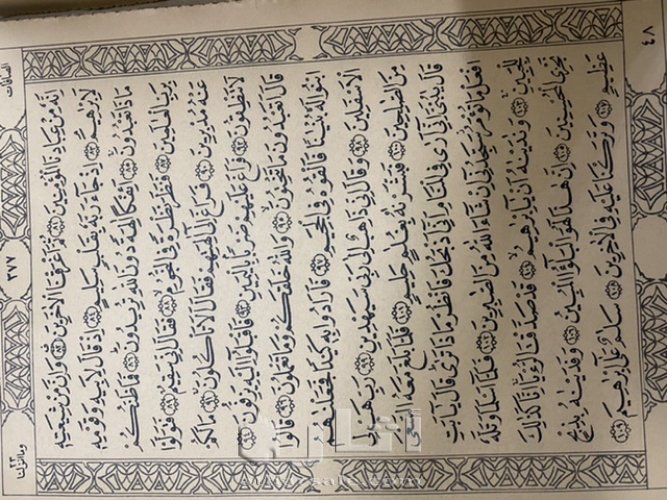 الصافات
٣٧٧
٢٣
إِنَّهُ مِنْ عِبَادِنَا الْمُؤْمِنِينَ ﴿٨١﴾ ثُمَّ أَغْرَقْنَا الْآخَرِينَ ﴿٨٢﴾ وَإِنَّ مِنْ شِيعَتِهِ
لَإِبْرٰهِيمَ ﴿٨٣﴾ إِذْ جَاءَ رَبَّهُ بِقَلْبٍ سَلِيمٍ ﴿٨٤﴾ إِذْ قَالَ لِأَبِيهِ وَقَوْمِهِ
مَاذَا تَعْبُدُونَ ﴿٨٥﴾ أَئِفْكًا آلِهَةً دُونَ اللّٰهِ تُرِيدُونَ ﴿٨٦﴾ فَمَا ظَنُّكُمْ
بِرَبِّ الْعٰلَمِينَ ﴿٨٧﴾ فَنَظَرَ نَظْرَةً فِي النُّجُومِ ﴿٨٨﴾ فَقَالَ إِنِّي سَقِيمٌ ﴿٨٩﴾ فَتَوَلَّوْا
عَنْهُ مُدْبِرِينَ ﴿٩٠﴾ فَرَاغَ إِلَى آلِهَتِهِمْ فَقَالَ أَلَا تَأْكُلُونَ ﴿٩١﴾ مَا لَكُمْ
لَا تَنْطِقُونَ ﴿٩٢﴾ فَرَاغَ عَلَيْهِمْ ضَرْبًا بِالْيَمِينِ ﴿٩٣﴾ فَأَقْبَلُوا إِلَيْهِ يَزِفُّونَ ﴿٩٤﴾
قَالَ أَتَعْبُدُونَ مَا تَنْحِتُونَ ﴿٩٥﴾ وَاللّٰهُ خَلَقَكُمْ وَمَا تَعْمَلُونَ ﴿٩٦﴾ قَالُوا
ابْنُوا لَهُ بُنْيَانًا فَأَلْقُوهُ فِي الْجَحِيمِ ﴿٩٧﴾ فَأَرَادُوا بِهِ كَيْدًا فَجَعَلْنٰهُمُ
الْأَسْفَلِينَ ﴿٩٨﴾ وَقَالَ إِنِّي ذَاهِبٌ إِلَى رَبِّي سَيَهْدِينِ ﴿٩٩﴾ رَبِّ هَبْ لِي
مِنَ الصّٰلِحِينَ ﴿١٠٠﴾ فَبَشَّرْنٰهُ بِغُلٰمٍ حَلِيمٍ ﴿١٠١﴾ فَلَمَّا بَلَغَ مَعَهُ السَّعْيَ
قَالَ يٰبُنَيَّ إِنِّي أَرَى فِي الْمَنَامِ أَنِّي أَذْبَحُكَ فَانْظُرْ مَاذَا تَرَى قَالَ يٰأَبَتِ
افْعَلْ مَا تُؤْمَرُ سَتَجِدُنِي إِنْ شَاءَ اللّٰهُ مِنَ الصّٰبِرِينَ ﴿١٠٢﴾ فَلَمَّا أَسْلَمَا وَتَلَّهُ
لِلْجَبِينِ ﴿١٠٣﴾ وَنٰدَيْنٰهُ أَنْ يٰإِبْرٰهِيمُ ﴿١٠٤﴾ قَدْ صَدَّقْتَ الرُّؤْيَا إِنَّا كَذٰلِكَ
نَجْزِي الْمُحْسِنِينَ ﴿١٠٥﴾ إِنَّ هٰذَا لَهُوَ الْبَلٰؤُا الْمُبِينُ ﴿١٠٦﴾ وَفَدَيْنٰهُ بِذِبْحٍ
عَظِيمٍ ﴿١٠٧﴾ وَتَرَكْنَا عَلَيْهِ فِي الْآخِرِينَ ﴿١٠٨﴾ سَلٰمٌ عَلَى إِبْرٰهِيمَ ﴿١٠٩﴾
٤٨